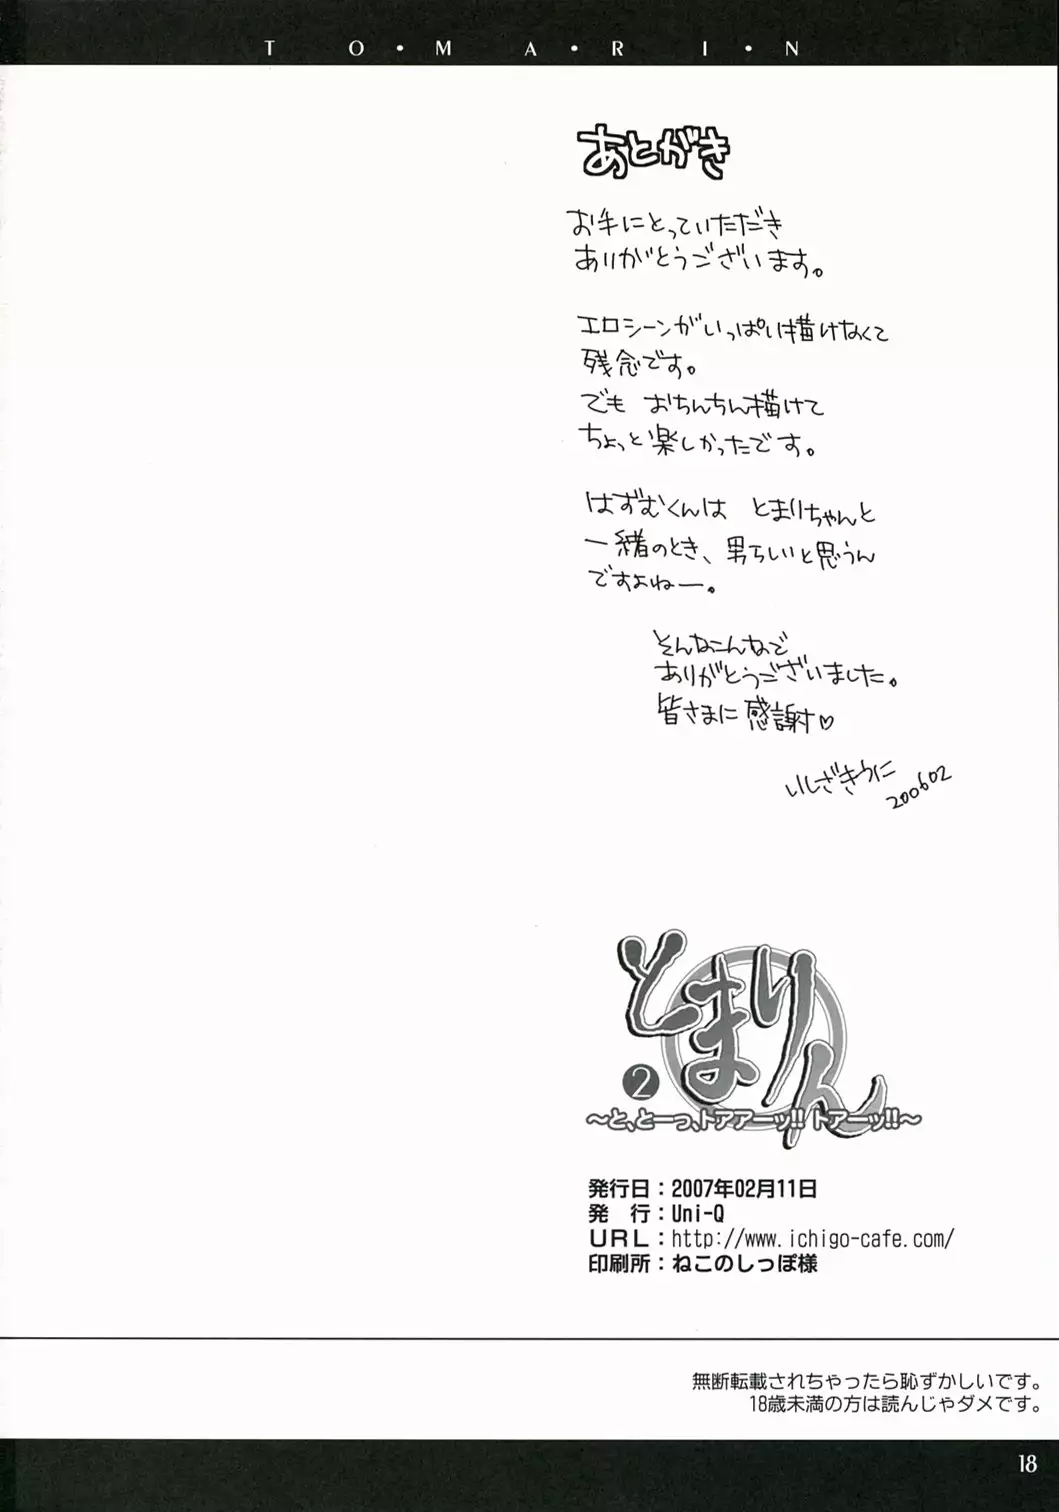 TO・MA・RI・N
あとがき
お手にとっていただき
ありがとうございます。
エロシーンがいっぱい描けなくて
残念です。
でも おちんちん描けて
ちょっと楽しかったです。
はずむくんは とまりちゃんと
一緒のとき、男らしいと思うん
ですよねー。
そんなこんなで
ありがとうございました。
皆さまに感謝♡
いしざきうに
200602
とまりん
2
～と、とーっ、トアアーッ!! トアーッ!!～
発行日：2007年02月11日
発　行：Uni-Q
URL：http://www.ichigo-cafe.com/
印刷所：ねこのしっぽ様
無断転載されちゃったら恥ずかしいです。
18歳未満の方は読んじゃダメです。
18